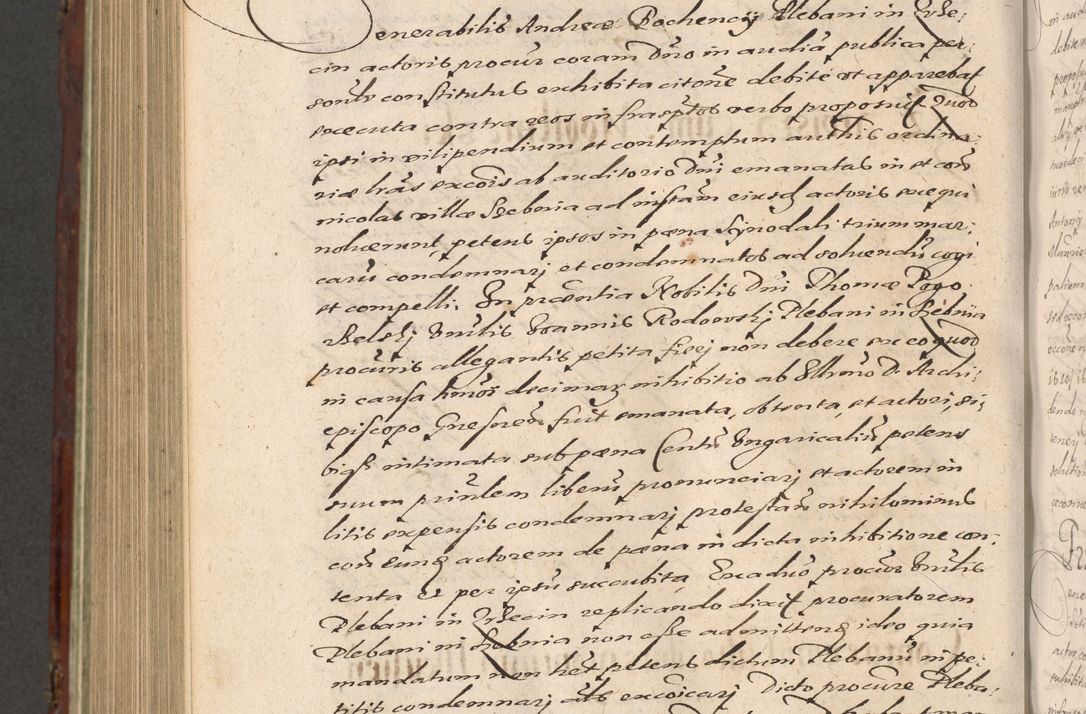 Venerabilis Andreæ Bochency Plebani in Wrze;
cin actoris procur coram Dno in audiã publica per;
sonlr constitutus exhibita citone debitè ut apparebat
executa contra reos infrascptos verbo proposuit Quod
ipsi in vilipendium et contemptum authtis ordina;
riæ lras excois ab auditorio Dni emanatas in et con
nicolas villæ Szebnia ad instam eiusd actoris exequi
noluerunt petens ipsos in pæna synodali trium mar;
carũ condemnarj et condemnatos ad solvendũ cogi
et compelli. In præntia Nobilis Dni Thomæ Pogo
rzelskj Vnrlis Ioannis Rodowskj Plebani in Szebnia
procuris allegantis petita fierj non debere ex eo quod
in causa hmoi decimar inhibitio ab Illmo D. Archi;
episcopo Gnesnen fuit emanata, obtenta, et actori, si;
bique intimata sub pæna Centũ Vngaricaliũ petens
suum prinlem liberũ pronunciarj et actorem in
litis expensis condemnarj protestan nihilominus
con eundem actorem de pæna in dicta inhibitione con;
tenta et per ipsũ succubita, Ex adũo procur Vnrlis
Plebani in Wrzecin replicando dixit procuratorem
Plebani in Szebnia non esse admittend ideo quia
mandatum non het petens dictum Plebanũ in pe;
titis condemnarj als excoicarj Dicto procure Pleba;